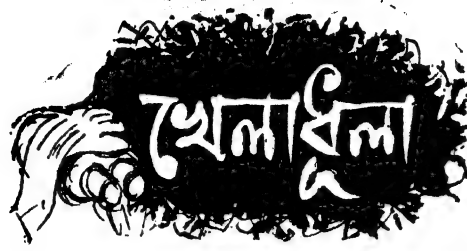 খেলাধুলা